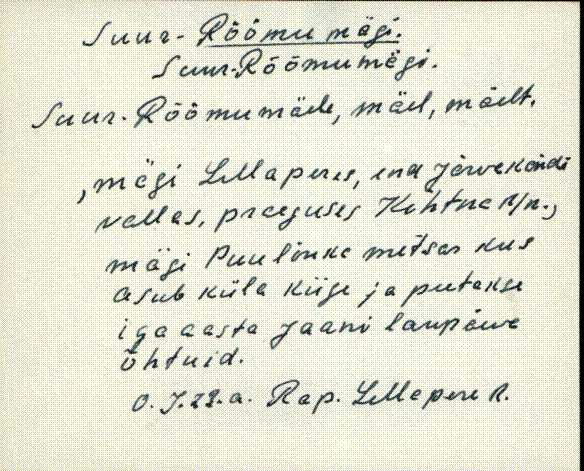 Suur-Rõõmu mägi.
Suur-Rõõmumägi.
Suur-Rõõmumäele, mäel, mäelt.
, mägi Lellapere, end Järvekandi
vallas, praeguses Kehtna r/n.,
mägi Puulinna metsas kus
asub küla kiige ja peetakse
iga aasta jaani laupäeva
õhtuid.
O. J. 29. a. Rap. Lellapere k.